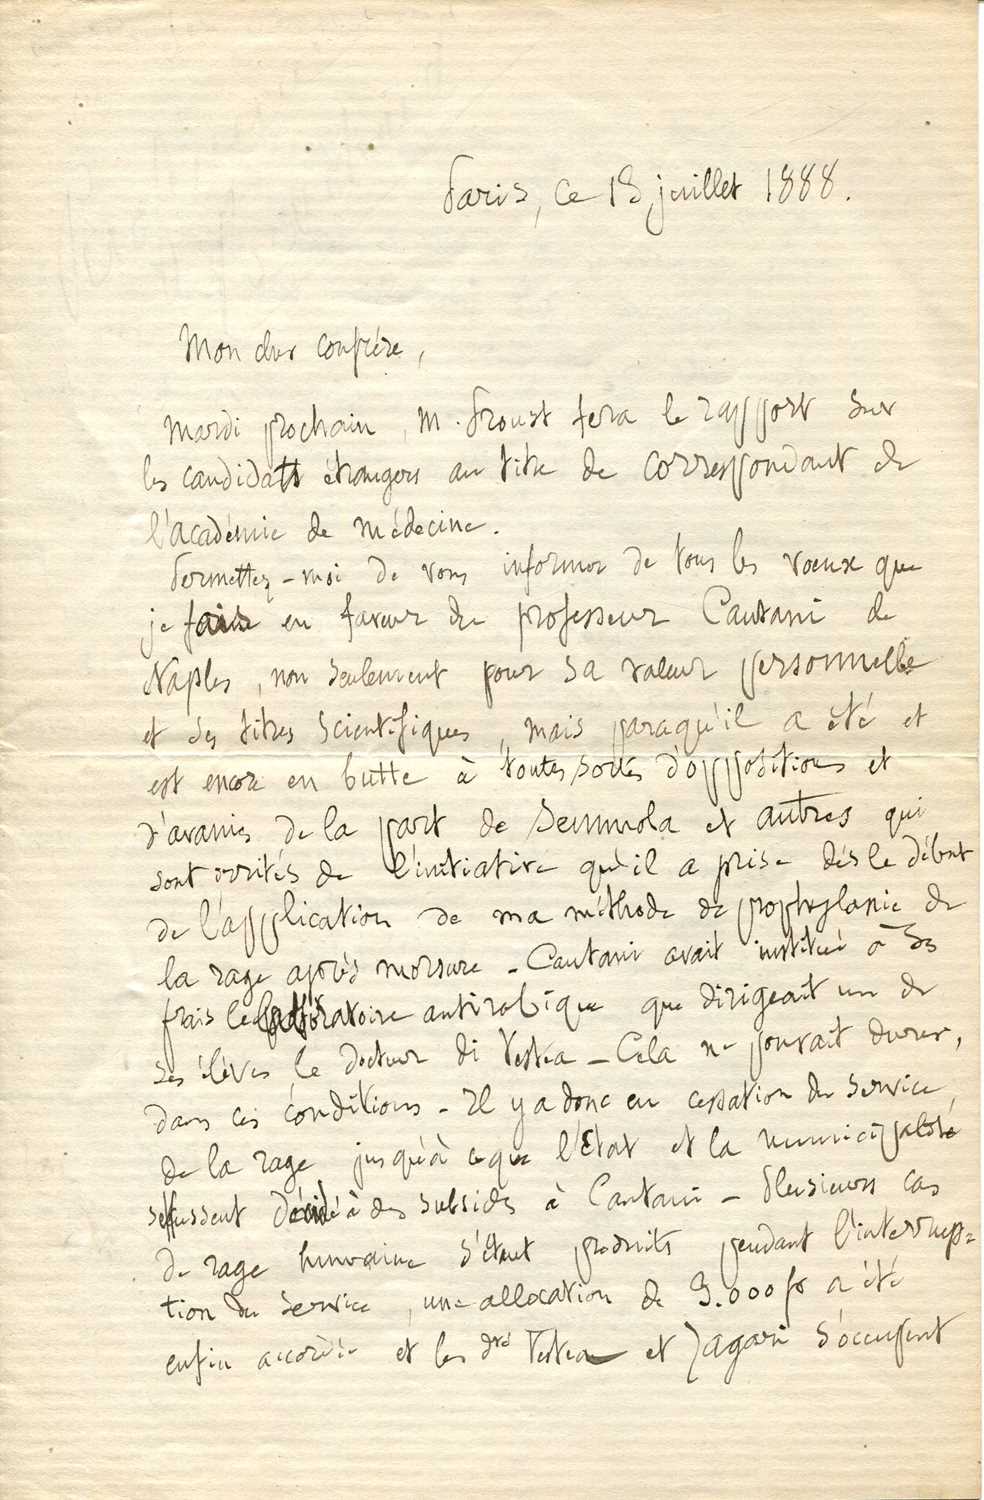 Paris, ce 18 juillet 1888.
Mon cher confrère,
Mardi prochain, M. Proust fera le rapport sur
les candidats étrangers au titre de correspondant de
l'académie de médecine.
Permettez-moi de vous informer de tous les voeux que
je fais en faveur du professeur Cantani de
Naples, non seulement pour sa valeur personnelle
et ses titres scientifiques, mais parcequ'il a été et
est encore en butte à toutes sortes d'oppositions et
d'avanies de la part de Semmola et autres qui
sont irrités de l'initiative qu'il a prise dès le début
de l'application de ma méthode de prophylaxie de
la rage après morsure - Cantani avait institué à ses
frais le laboratoire antirabique que dirigeait un de
ses élèves le docteur di Vestea - Cela ne pouvait durer,
dans ces conditions - Il y a donc eu cessation du service
de la rage jusqu'à ce que l'Etat et la municipalité
se fussent décidé à des subsides à Cantani - Plusieurs cas
de rage humaine s'étant produits pendant l'interrup=
tion du service, une allocation de 3.000 fr a été
enfin accordée et les drs Vestea et Zagari s'occupent